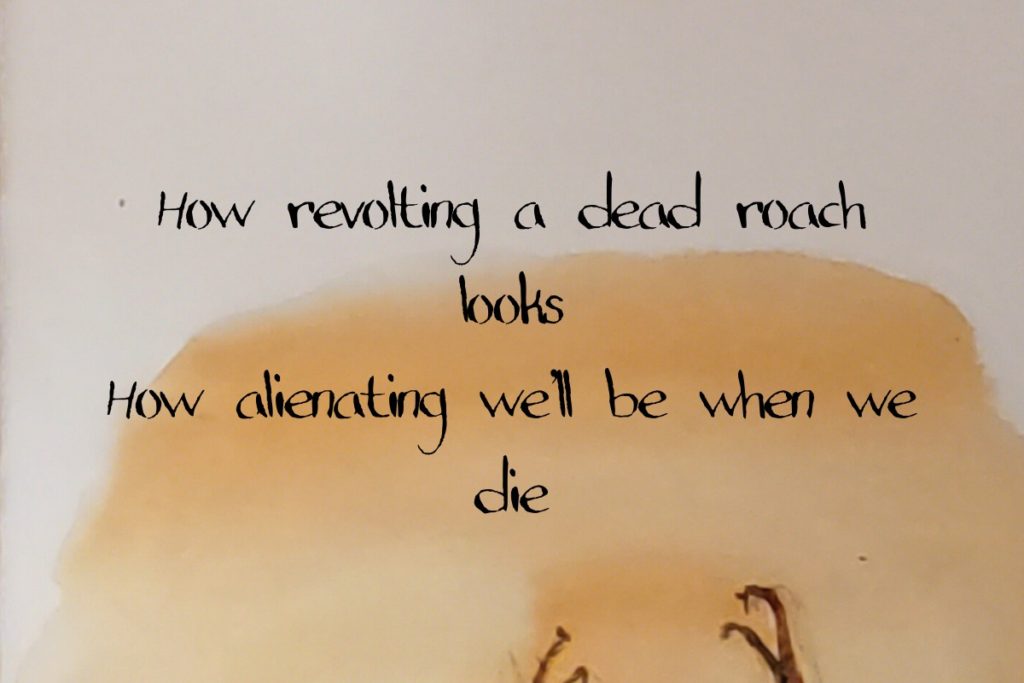 How revolting a dead roach
looks
How alienating we'll be when we
die